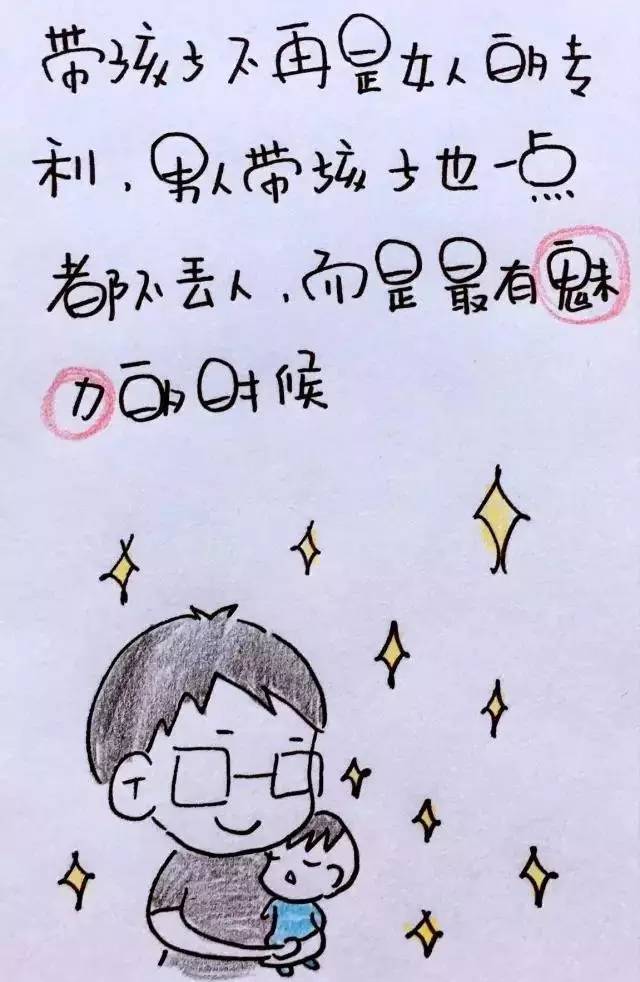 带孩子不再是女人的专
利，男人带孩子也一点
都不丢人，而是最有魅
力的时候